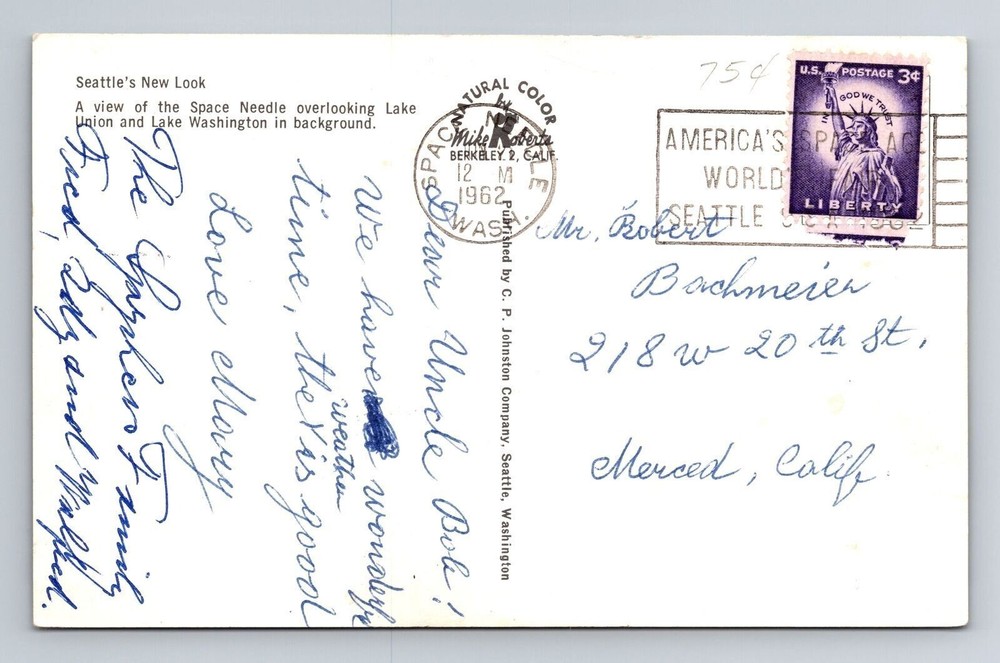 Seattle's New Look
A view of the Space Needle overlooking Lake
Union and Lake Washington in background.
NATURAL COLOR
by
Mike Roberts
BERKELEY 2, CALIF.
SPAC
LE
12 M
1962
WASH.
75¢
U.S. POSTAGE 3¢
IN GOD WE TRUST
LIBERTY
AMERICA'S SPACE AGE
WORLD'S
SEATTLE U.S.A. 1962
Published by C. P. Johnston Company, Seattle, Washington
Dear Uncle Bob!
We have wonderf
weather
time, the is good
Love Mary
The Family
Fred, Edy and Walfred.
Mr. Robert
Bachmeier
218 W 20 th St.
Merced, Calif.